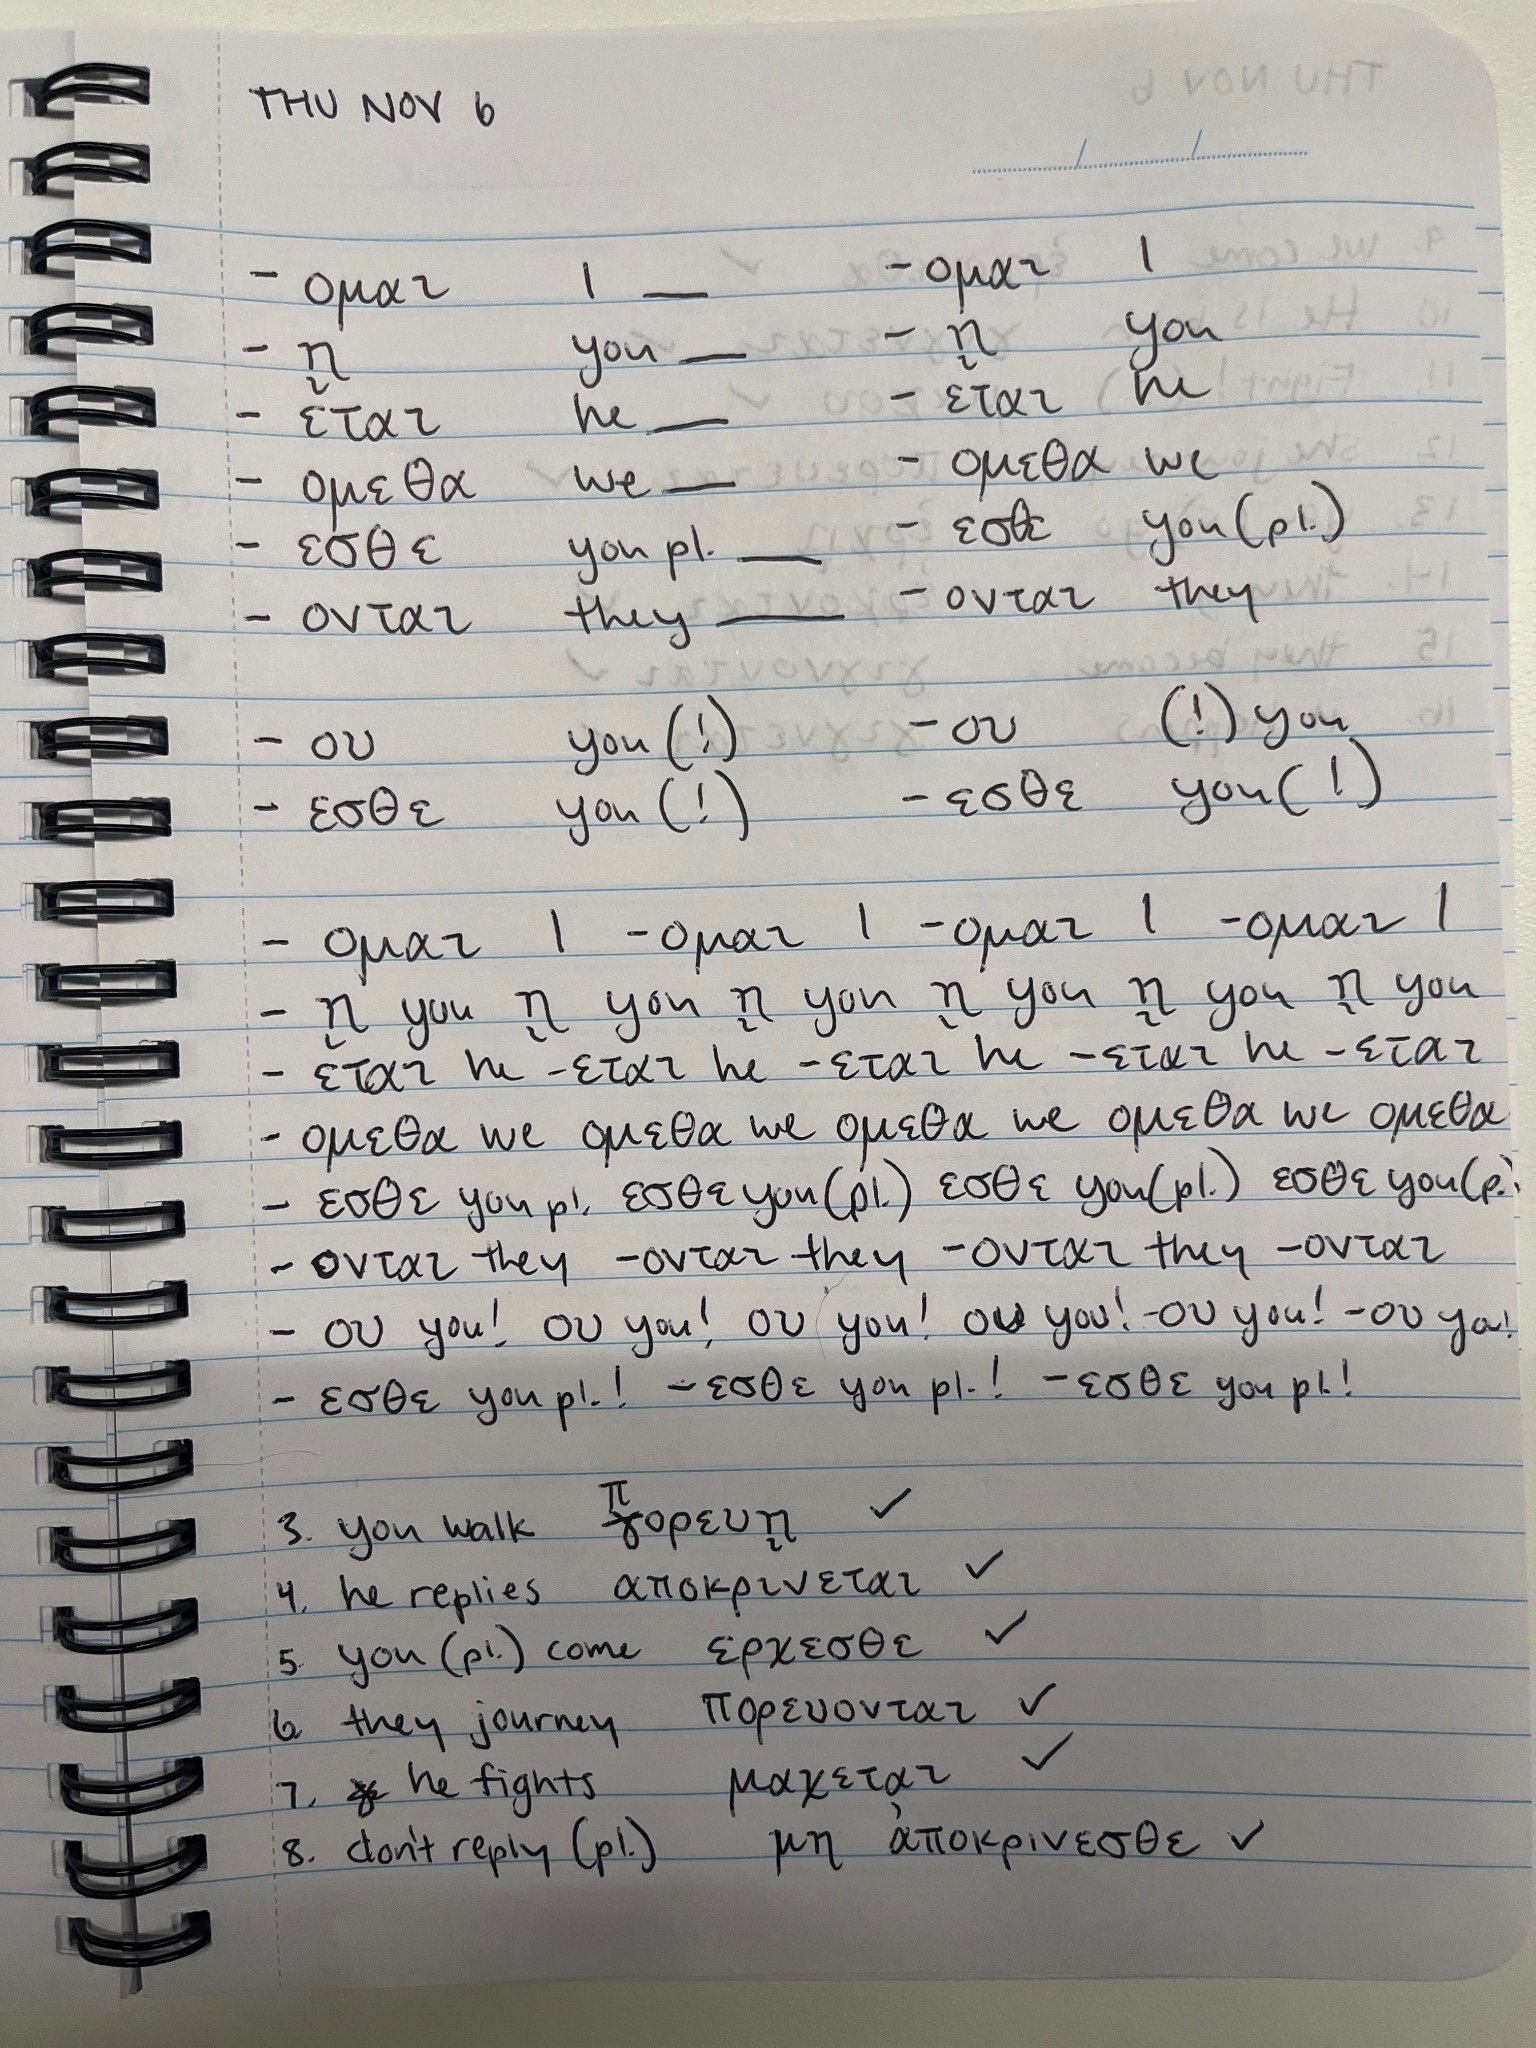 THU NOV 6
- ομαι I __ - ομαι I
- ῃ you __ - ῃ you
- εται he __ - εται he
- ομεθα we __ - ομεθα we
- εσθε you pl. __ - εσθε you (pl.)
- ονται they __ - ονται they
- ου you (!) - ου (!) you
- εσθε you (!) - εσθε you (!)
- ομαι I - ομαι I - ομαι I - ομαι I
- ῃ you ῃ you ῃ you ῃ you ῃ you ῃ you
- εται he - εται he - εται he - εται he - εται
- ομεθα we ομεθα we ομεθα we ομεθα we ομεθα
- εσθε you pl. εσθε you (pl.) εσθε you (pl.) εσθε you (p.
- ονται they - ονται they - ονται they - ονται
- ου you! ου you! ου you! ου you! - ου you! - ου yo!
- εσθε you pl.! - εσθε you pl.! - εσθε you pl.!
3. you walk πορευῃ ✓
4. he replies αποκρινεται ✓
5. you (pl.) come ερχεσθε ✓
6. they journey πορευονται ✓
7. he fights μαχεται ✓
8. don't reply (pl.) μη ἀποκρινεσθε ✓